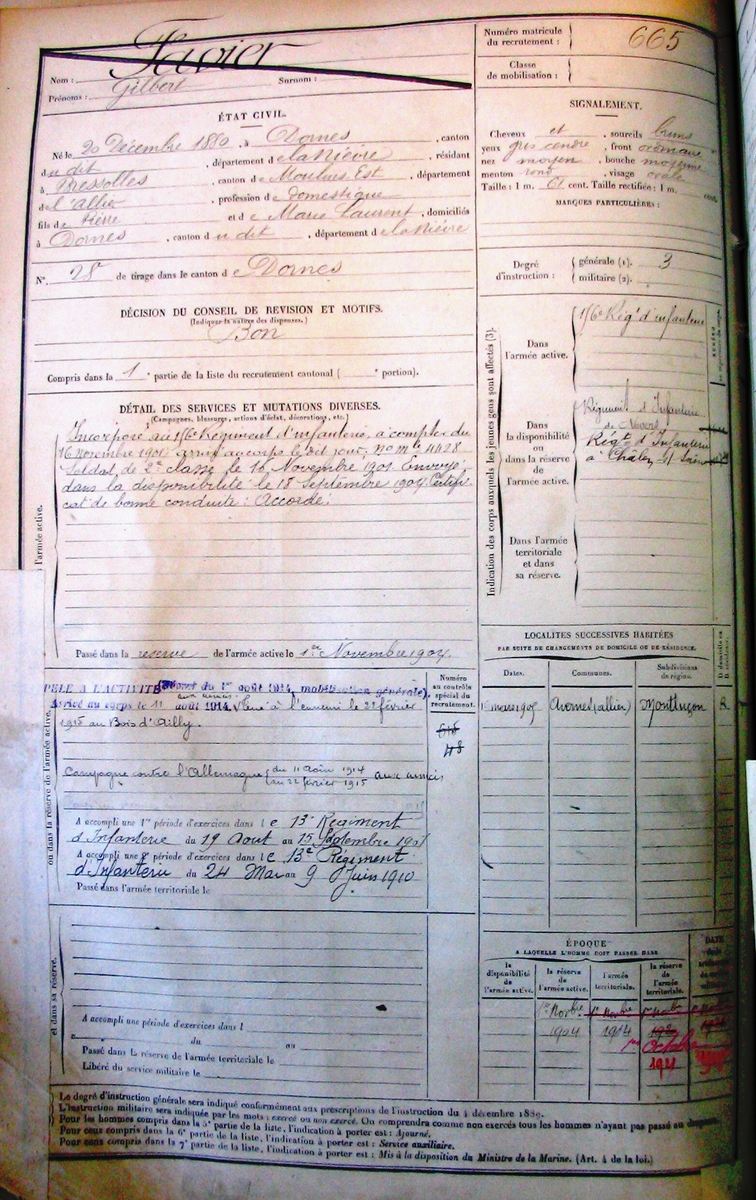 Favier
Nom :
Surnom :
Prénoms : Gilbert
Numéro matricule du recrutement : 665
Classe de mobilisation :
ÉTAT CIVIL.
Né le 20 Décembre 1880, à Dornes, canton
du dit, département de la Nièvre, résidant
à Bressolles, canton de Moulins Est, département
de l'Allier, profession de domestique
fils de Pierre et de Marie Laurent, domiciliés
à Dornes, canton du dit, département de la Nièvre
N° 28 de tirage dans le canton de Dornes
SIGNALEMENT.
Cheveux et, sourcils bruns
yeux gris cendre, front ordinaire
nez moyen, bouche moyenne
menton rond, visage ovale
Taille : 1 m. 61 cent. Taille rectifiée : 1 m. cent.
MARQUES PARTICULIÈRES :
Degré d'instruction : générale (1). 3
militaire (2).
DÉCISION DU CONSEIL DE REVISION ET MOTIFS.
(Indiquer la nature des dispenses.)
Bon
Compris dans la 1e partie de la liste du recrutement cantonal ( e portion).
DÉTAIL DES SERVICES ET MUTATIONS DIVERSES.
(Campagnes, blessures, actions d'éclat, décorations, etc.)
Incorporé au 16e Régiment d'infanterie, à compter du
16 novembre 1901 arrivé au corps le dit jour, no mle 4428
Soldat de 2e classe le 16 Novembre 1901. Envoyé
dans la disponibilité le 18 Septembre 1904. Certifi
cat de bonne conduite : Accordé.
Passé dans la réserve de l'armée active le 1er Novembre 1904
Indication des corps auxquels les jeunes gens sont affectés (3).
Dans l'armée active.
16e Régt d'infanterie
Dans la disponibilité ou dans la réserve de l'armée active.
Régiment d'Infanterie
de Nevers
Régt d'Infanterie
à Chalon s/ Saône
Dans l'armée territoriale et dans sa réserve.
LOCALITÉS SUCCESSIVES HABITÉES
PAR SUITE DE CHANGEMENTS DE DOMICILE OU DE RÉSIDENCE.
Dates.
Communes.
Subdivisions de région.
mars 1905
(allier)
Montluçon
R
Numéro au contrôle spécial du recrutement.
48
PELÉ A L'ACTIVITÉ (Décret du 1er août 1914, mobilisation générale).
Arrivé au corps le 11 août 1914. à l'ennemi le 22 février
1915 au Bois d'Ailly.
Campagne contre l'Allemagne du 11 Août 1914
au 22 février 1915 aux armées
A accompli une 1re période d'exercices dans le 13e Régiment
d'Infanterie du 19 Août au 15 Septembre
A accompli une 2e période d'exercices dans le 13e Régiment
d'Infanterie du 24 Mai au 9 Juin 1910
Passé dans l'armée territoriale le
ou dans la réserve de l'armée active.
et dans sa réserve.
A accompli une période d'exercices dans l
du au
Passé dans la réserve de l'armée territoriale le
Libéré du service militaire le
ÉPOQUE
A LAQUELLE L'HOMME DOIT PASSER DANS
la disponibilité de l'armée active.
la réserve de l'armée active.
l'armée territoriale.
la réserve de l'armée territoriale.
DATE
1er Novbre 1904
1er Novbre 1914
1er Octobre 1921
Le degré d'instruction générale sera indiqué conformément aux prescriptions de l'instruction du 4 décembre 1889.
L'instruction militaire sera indiquée par les mots : exercé ou non exercé. On comprendra comme non exercés tous les hommes n'ayant pas passé au drapeau
Pour les hommes compris dans la 5e partie de la liste, l'indication à porter est : Ajourné.
Pour ceux compris dans la 6e partie de la liste, l'indication à porter est : Service auxiliaire.
Pour ceux compris dans la 7e partie de la liste, l'indication à porter est : Mis à la disposition du Ministre de la Marine. (Art. 4 de la loi.)